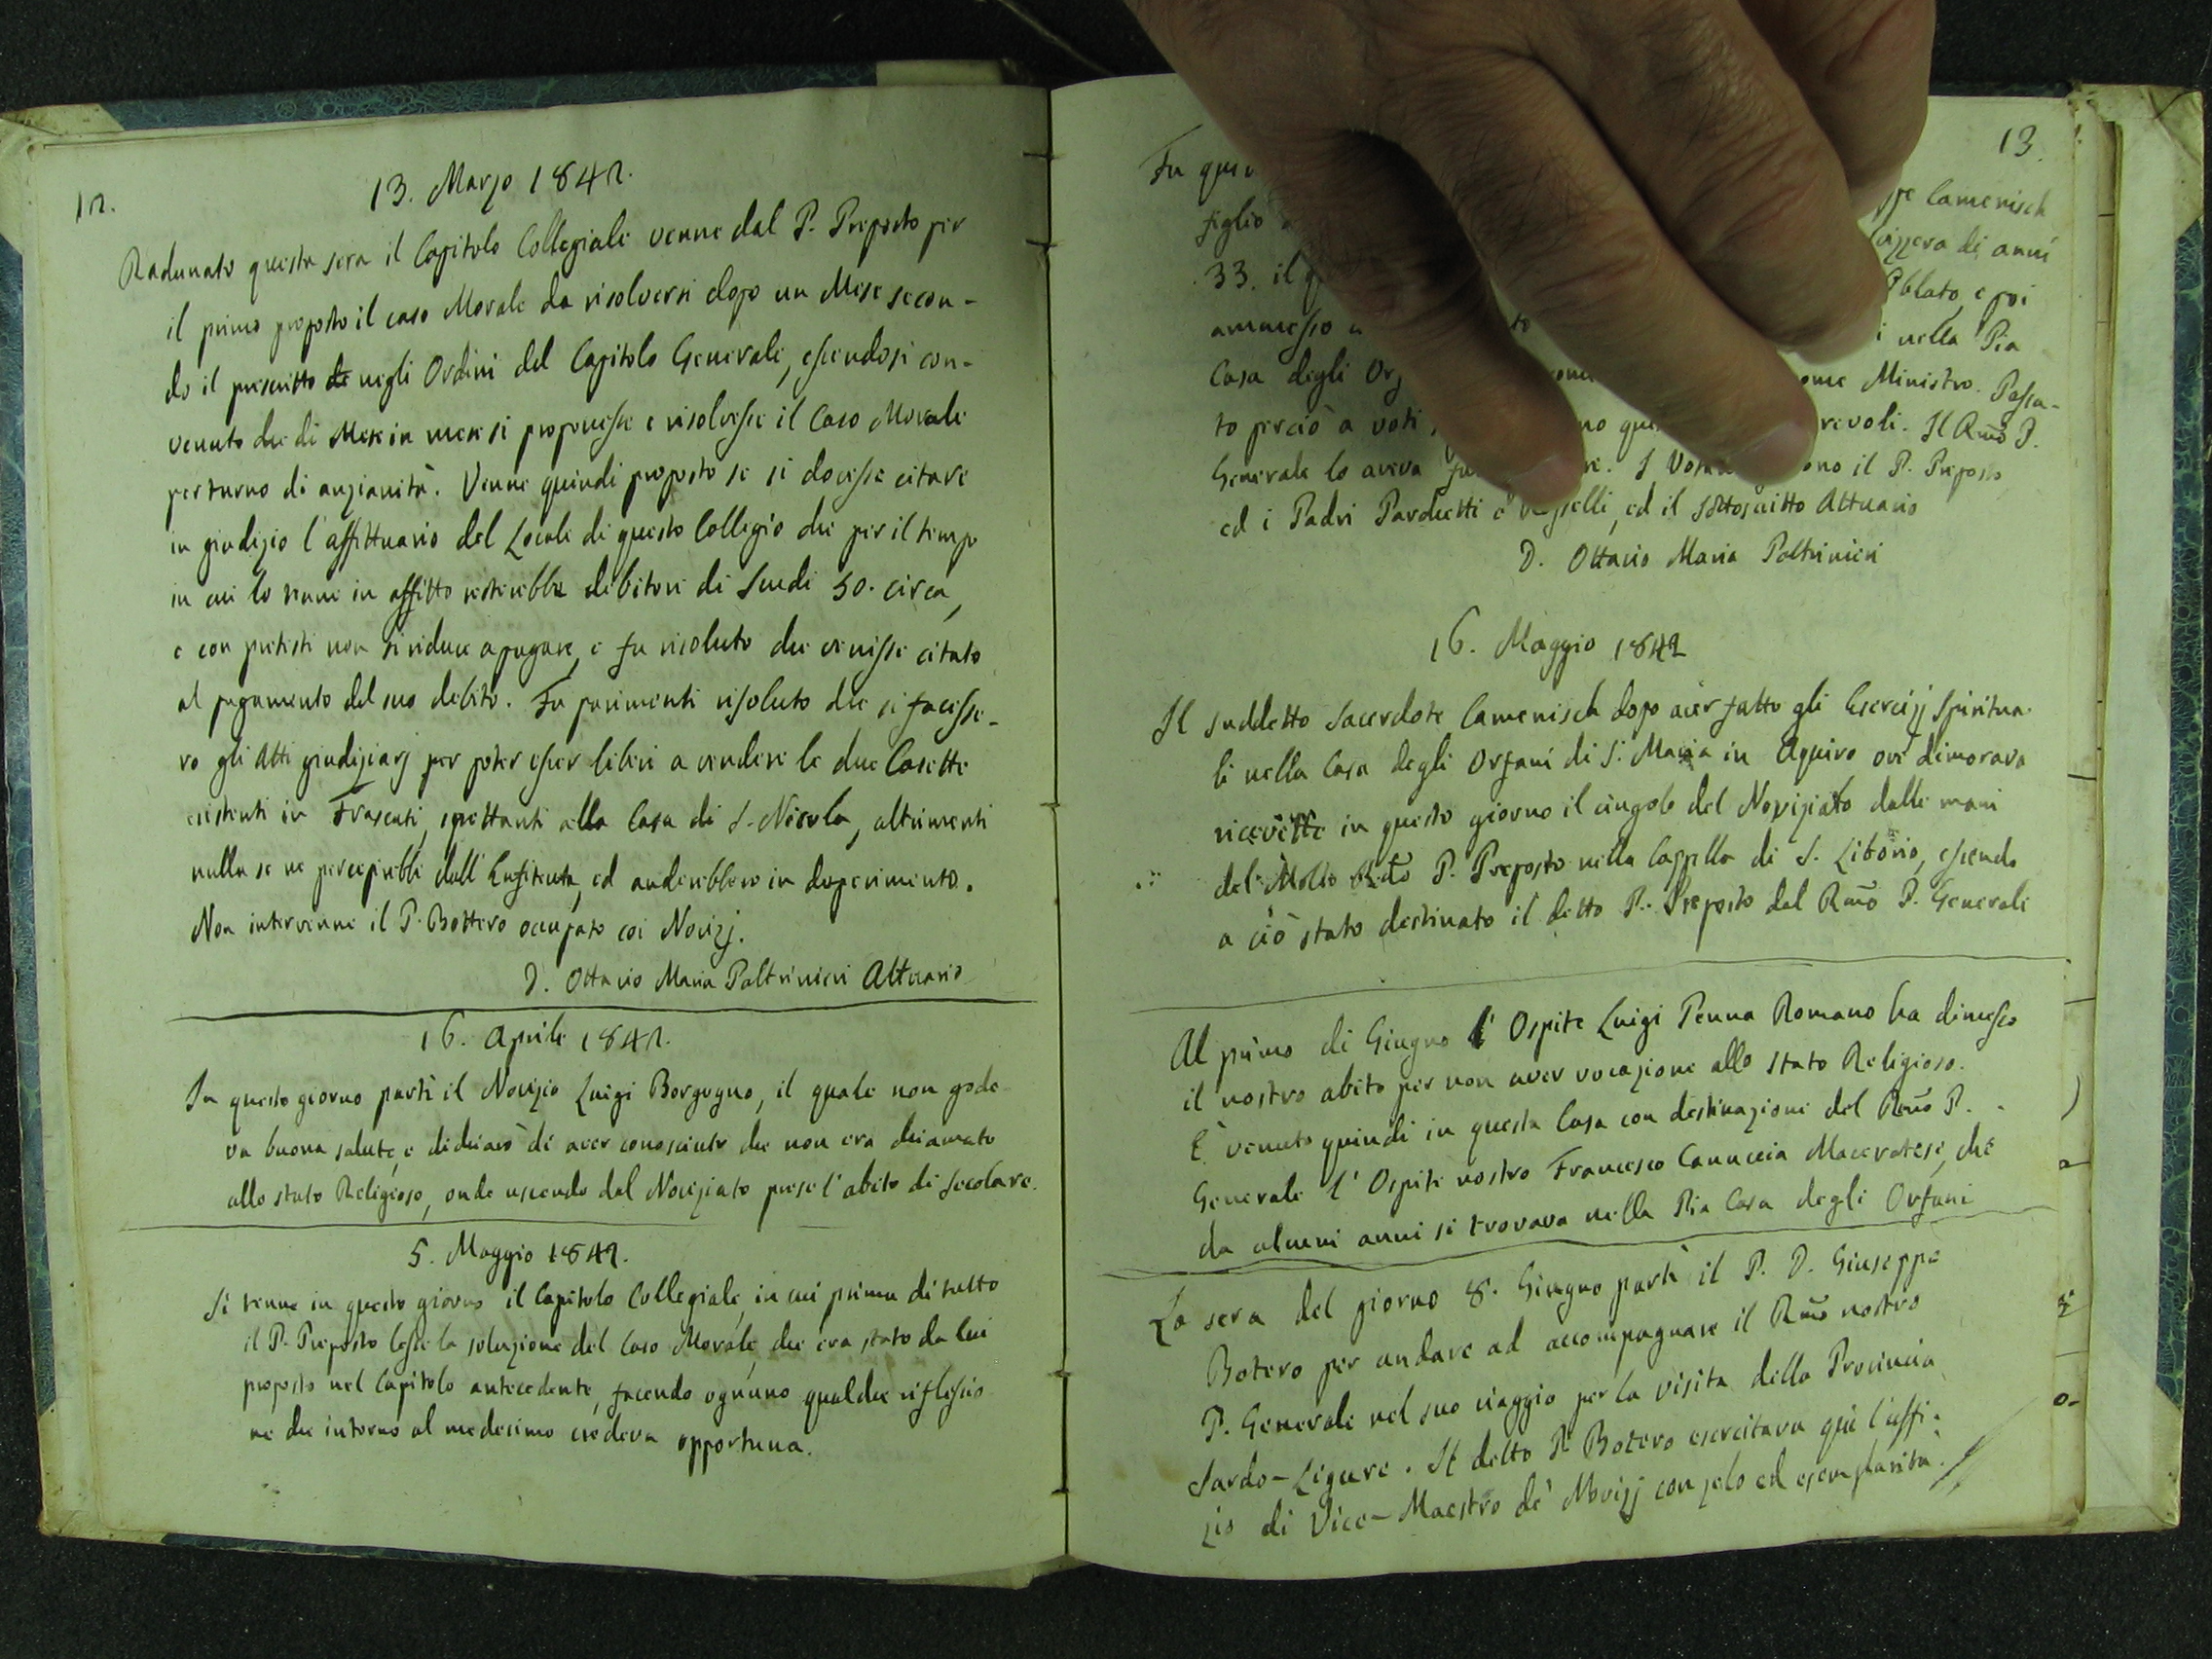 12.
13. Marzo 1842.
Radunato questa sera il Capitolo Collegiale venne dal P. Preposto per
il primo proposto il caso Morale da risolversi dopo un Mese secon-
do il prescritto de negli Ordini del Capitolo Generale, essendosi con-
venuto che di Mese in mese si proponesse e risolvesse il Caso Morale
per turno di anzianità. Venne quindi proposto se si dovesse citare
in giudizio l'affittuario del Locale di questo Collegio che per il tempo
in cui lo tenne in affitto resterebbe debitore di Scudi 50. circa,
e con pretesti non si riduce a pagare, e fu risoluto che venisse citato
al pagamento del suo debito. Fu parimenti risoluto che si facesse-
ro gli Atti giudiziarj per poter esser liberi a vendere le due Casette
esistenti in Frascati, spettanti alla Casa di S. Nicola, altrimenti
nulla se ne percepirebbe dall' Enfiteuta, ed anderebbero in deperimento.
Non intervenne il P. Bottero occupato coi Novizj.
D. Ottavio Maria Paltrinieri Attuario
16. Aprile 1842.
In questo giorno partì il Novizio Luigi Borgogno, il quale non gode-
va buona salute, e dichiarò di aver conosciuto che non era chiamato
allo stato Religioso, onde uscendo dal Noviziato prese l'abito di Secolare.
5. Maggio 1842.
Si tenne in questo giorno il Capitolo Collegiale, in cui prima di tutto
il P. Preposto lesse la soluzione del Caso Morale, che era stato da lui
proposto nel Capitolo antecedente, facendo ognuno qualche riflessio
ne che intorno al medesimo credeva opportuna.
13.
Fu
figlio
33. il
ammesso
Casa degli
to perciò a voti
Generale lo aveva
ed i Padri Parchetti e
Camenisch
di anni
Oblato, e poi
nella Pia
Ministro. Passa-
Il Rmo P.
il P. Preposto
ed il sottoscritto Attuario
D. Ottavio Maria Paltrinieri
16. Maggio 1842
Il suddetto Sacerdote Camenisch dopo aver fatto gli Esercizj Spiritua-
li nella Casa degli Orfani di S. Maria in Aquiro ove dimorava
ricevette in questo giorno il cingolo del Noviziato dalle mani
del Molto Rdo P. Preposto nella Cappella di S. Liborio, essendo
a ciò stato destinato il detto P. Preposto dal Rmo P. Generale
Al primo di Giugno l' Ospite Luigi Penna Romano ha dimesso
il nostro abito per non aver vocazione allo stato Religioso.
È venuto quindi in questa Casa con destinazione del Rmo P.
Generale l' Ospite nostro Francesco Canuccia Maceratese, che
da alcuni anni si trovava nella Pia Casa degli Orfani
La sera del giorno 8. Giugno partì il P. D. Giuseppe
Botero per andare ad accompagnare il Rmo nostro
P. Generale nel suo viaggio per la visita della Provincia
Sardo-Ligure. Il detto P. Botero esercitava quì l'uffi-
zio di Vice-Maestro de' Novizj con zelo ed esemplarità.